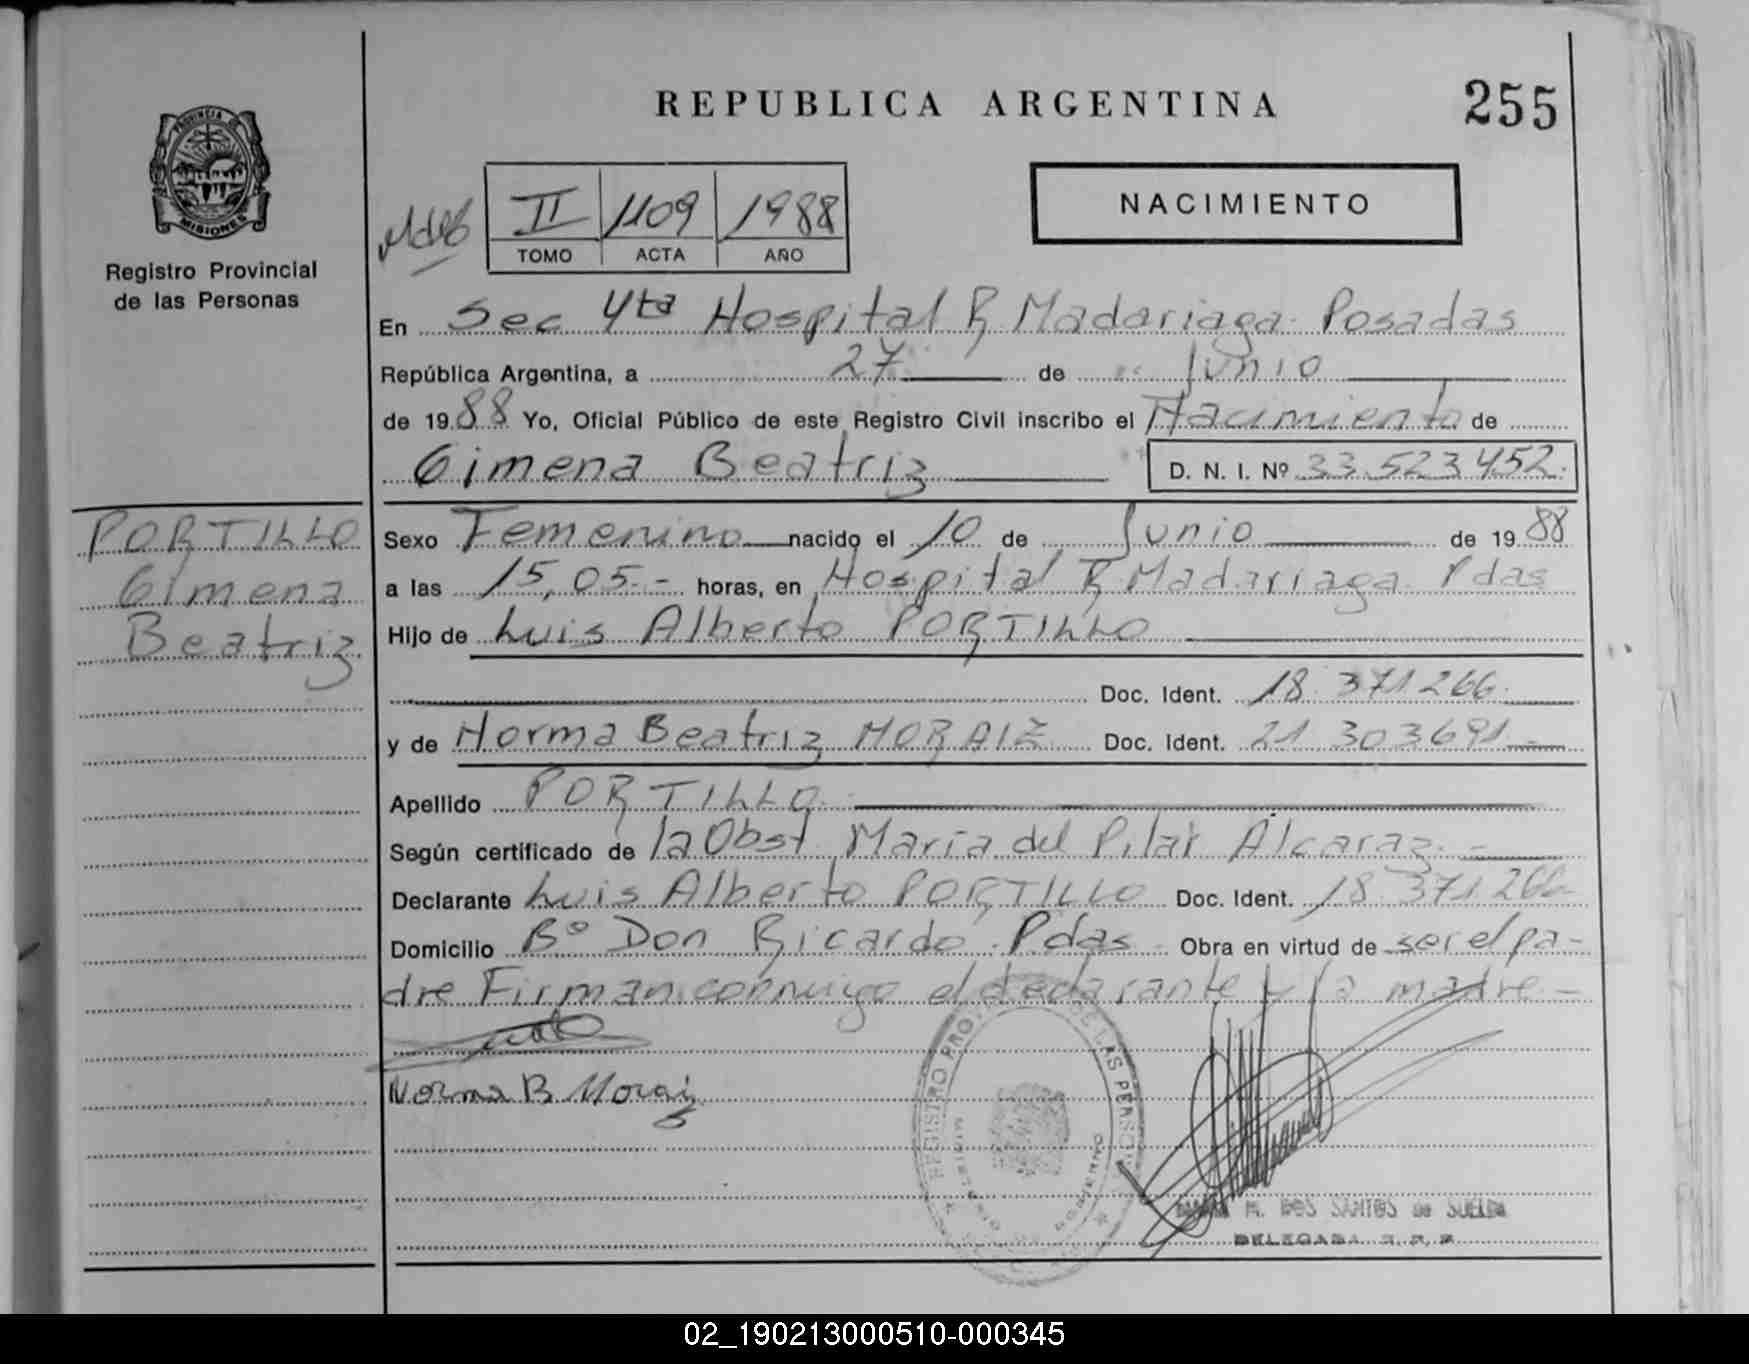 REPUBLICA ARGENTINA
255
PROVINCIA DE
MISIONES
Registro Provincial
de las Personas
II 1109 1988
TOMO ACTA AÑO
NACIMIENTO
En Sec 4ta Hospital R Madariaga Posadas
República Argentina, a 27 de Junio
de 1988 Yo, Oficial Público de este Registro Civil inscribo el Nacimiento de
Gimena Beatriz D. N. I. Nº 33.523.452.
PORTILLO
Gimena
Beatriz
Sexo Femenino nacido el 10 de Junio de 1988
a las 15,05.- horas, en Hospital R Madariaga Pdas
Hijo de Luis Alberto PORTILLO
Doc. Ident. 18.371.266.
y de Norma Beatriz MORAIZ Doc. Ident. 21 303691.-
Apellido PORTILLO.
Según certificado de la Obst. María del Pilar Alcaraz.-
Declarante Luis Alberto PORTILLO Doc. Ident. 18.371.266-
Domicilio Bº Don Ricardo. Pdas Obra en virtud de ser el pa-
dre Firman conmigo el declarante y la madre-
Norma B. Moraiz
REGISTRO PROV. DE LAS PERSONAS
MINISTERIO GOBIERNO
M. DOS SANTOS de SUELDO
DELEGADA R. P. P.
02_190213000510-000345